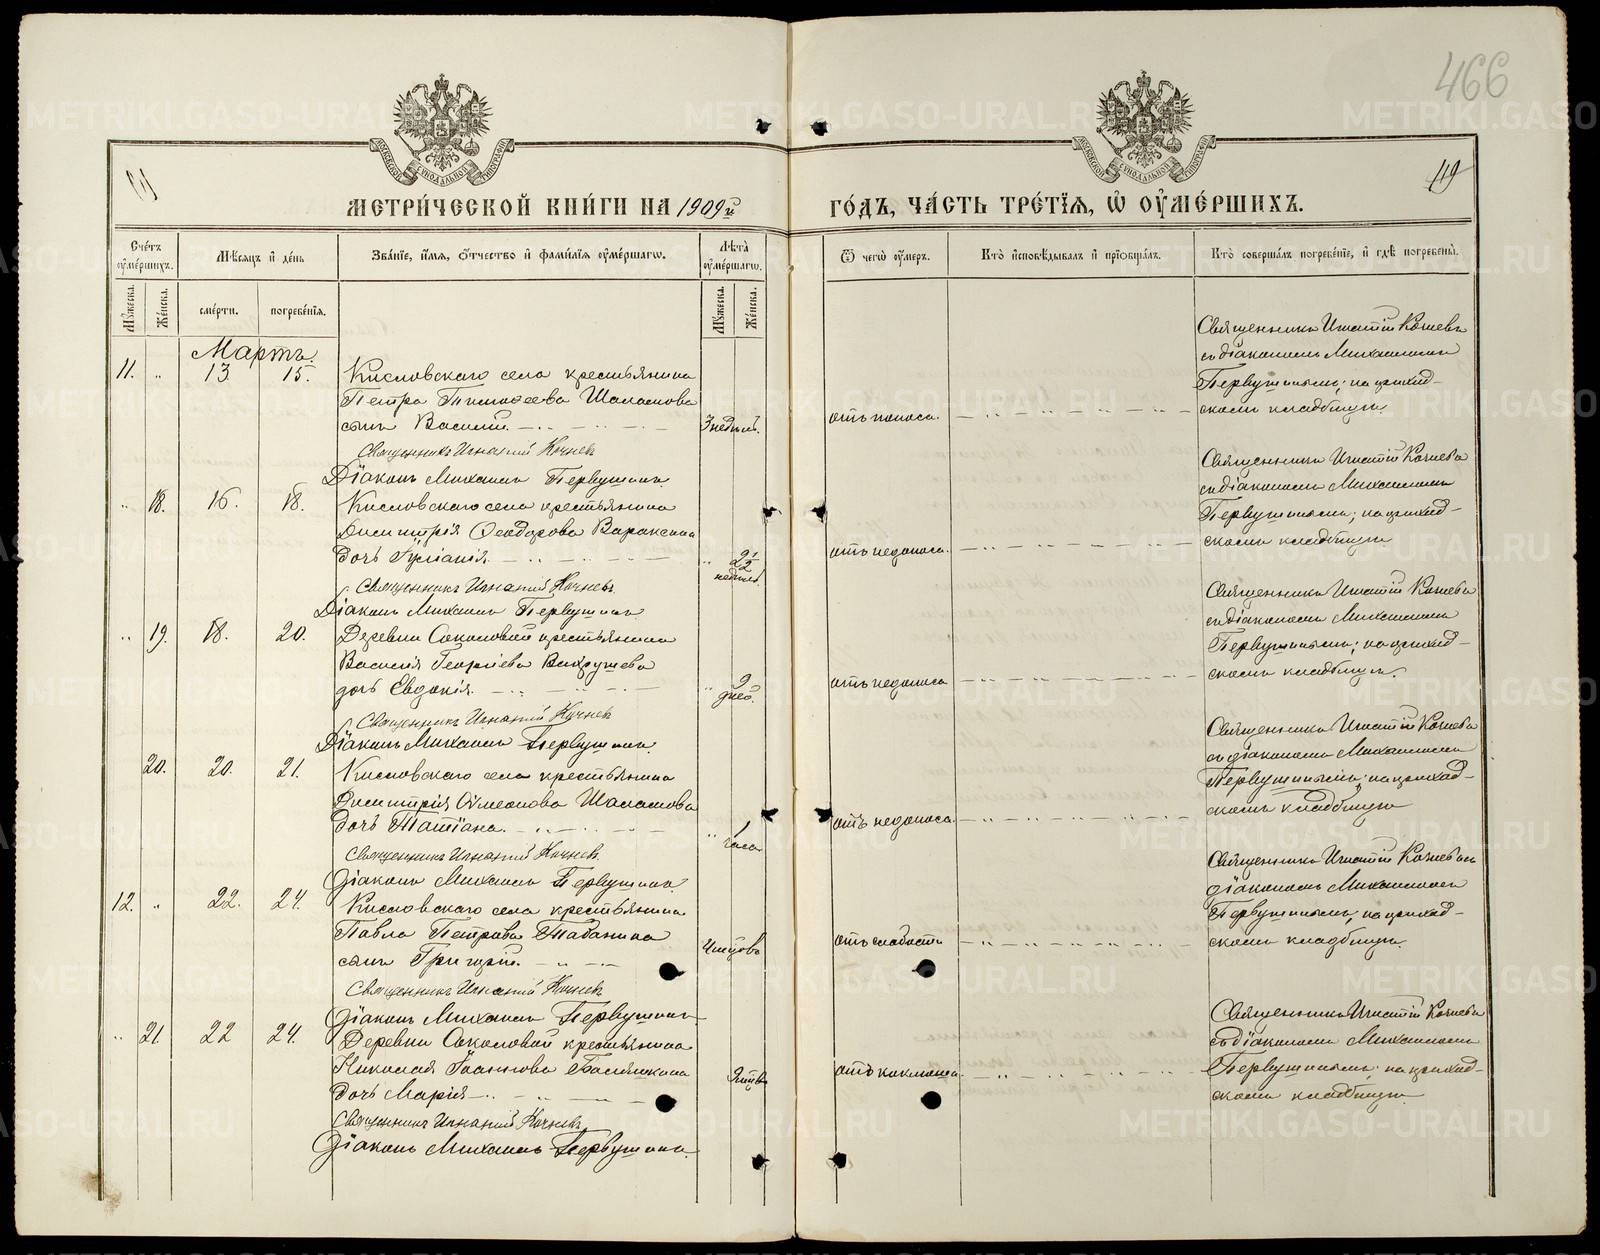 466
119
МЕТРИ́ЧЕСКОЙ КНИ́ГИ НА 1909й ГО́ДЪ, ЧА́СТЬ ТРЕ́ТІѦ, Ѿ ОУМЕ́РШИХЪ.
Сче́тъ оуме́ршихъ.
Мѣ́сѧцъ и де́нь
Зва́нїе, и́мѧ, ѻ҆́тчество и фами́лїѧ оуме́ршагѡ.
Лѣ́та оуме́ршагѡ.
Ѿ чегѡ̀ оу́меръ.
Кто̀ и҆сповѣ́дывалъ и прїѡбща́лъ.
Кто̀ соверша́лъ погребе́нїе, и гдѣ̀ погребены̀.
Му́жеска.
Же́нска.
сме́рти.
погребе́нїѧ.
Му́жеска.
Же́нска.
Мартъ.
11. " 13 15.
Кисловскаго села крестьянина
Петра Тимоѳеева Шаламова
сынъ Василій.
3 недѣль.
отъ поноса.
Священникъ Игнатій Кочневъ
съ діакономъ Михаиломъ
Первушинымъ; на приход-
скомъ кладбищѣ.
Священникъ Игнатій Кочневъ
Діаконъ Михаилъ Первушинъ.
" 18. 16. 18.
Кисловскаго села крестьянина
Димитрія Ѳеодорова Вараксина
дочь Іуліанія.
" 2½ недѣль.
отъ недоноса.
Священникъ Игнатій Кочневъ
съ діакономъ Михаиломъ
Первушинымъ; на приход-
скомъ кладбищѣ.
Священникъ Игнатій Кочневъ
Діаконъ Михаилъ Первушинъ
" 19. 18. 20.
Деревни Соколовой крестьянина
Василія Георгіева Вахрушева
дочь Евдокія.
" 2 дней.
отъ недоноса
Священникъ Игнатій Кочневъ
съ діакономъ Михаиломъ
Первушинымъ; на приход-
скомъ кладбищѣ.
Священникъ Игнатій Кочневъ
Діаконъ Михаилъ Первушинъ.
20. 20. 21.
Кисловскаго села крестьянина
Димитрія Сѵмеонова Шаламова
дочь Татіана.
" 1 часа
отъ недоноса.
Священникъ Игнатій Кочневъ
съ діакономъ Михаиломъ
Первушинымъ; на приход-
скомъ кладбищѣ
Священникъ Игнатій Кочневъ.
Діаконъ Михаилъ Первушинъ.
12. " 22. 24.
Кисловскаго села крестьянина
Павла Петрова Табанина
сынъ Григорій.
отъ слабости
Священникъ Игнатій Кочневъ съ
діакономъ Михаиломъ
Первушинымъ, на приход-
скомъ кладбищѣ.
Священникъ Игнатій Кочневъ
Діаконъ Михаилъ Первушинъ
" 21. 22 24.
Деревни Соколовой крестьянина
Николая Іоаннова
дочь Марія
отъ коклюша.
Священникъ Игнатій Кочневъ
съ діакономъ Михаиломъ
Первушинымъ на приход-
скомъ кладбищѣ.
Священникъ Игнатій Кочневъ
Діаконъ Михаилъ Первушинъ.
METRIKI.GASO-URAL.RU